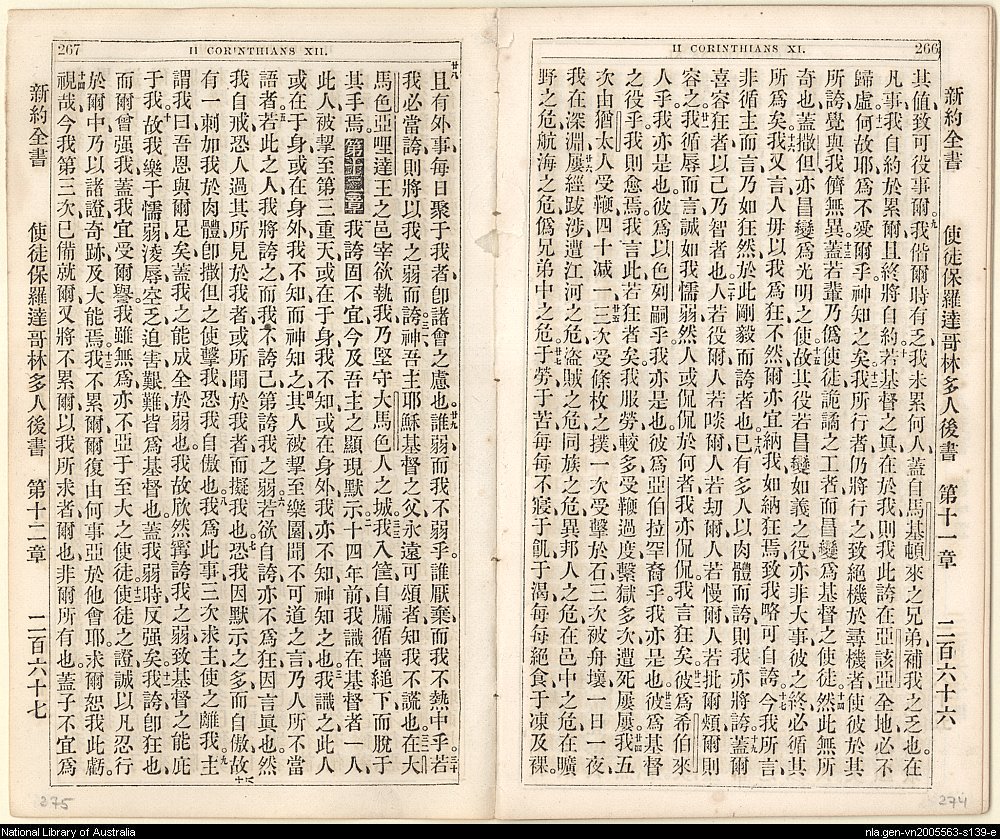 266
II CORINTHIANS XI.
新約全書 使徒保羅達哥林多人後書 第十一章 二百六十六
其值致可役事爾。九我偕爾時有乏我未累何人蓋自馬基頓來之兄弟補我之乏也。在
凡事我自約於累爾且終將自約。十若基督之眞在於我則我此誇在亞該亞全地必不
歸虛。十一何故耶爲不愛爾乎神知之矣。十二我所行者仍將行之致絕機於尋機者使彼於其
所誇覺與我儕無異。十三蓋若輩乃僞使徒詭譎之工者而昌變爲基督之使徒。十四然此無所
奇也蓋撒但亦昌變爲光明之使。十五故其役若昌變如義之役亦非大事彼之終必循其
所爲矣。十六我又言人毋以我爲狂不然爾亦宜納我如納狂焉致我略可自誇。十七今我所言
非循主而言乃如狂然於此剛毅而誇者也。十八已有多人以肉體而誇則我亦將誇。十九蓋爾
喜容狂者以己乃智者也。二十人若役爾人若啖爾人若刧爾人若慢爾人若批爾頰爾則
容之。廿一我循辱而言誠如我懦弱然人或侃侃於何者我亦侃侃我言狂矣。廿二彼爲希伯來
人乎。我亦是也彼爲以色列嗣乎我亦是也彼爲亞伯拉罕裔乎我亦是也。廿三彼爲基督
之役乎我則愈焉我言此若狂者矣我服勞較多受鞭過度繫獄多次遭死屢屢。廿四我五
次由猶太人受鞭四十減一。廿五三次受條枚之撲一次受擊於石三次被舟壞一日一夜
我在深淵。廿六屢經跋涉遭江河之危盜賊之危同族之危異邦人之危在邑中之危在曠
野之危航海之危僞兄弟中之危。廿七于勞于苦每每不寢于飢于渴每每絕食于凍及裸。
274
267
II CORINTHIANS XII.
廿八且有外事每日聚于我者卽諸會之慮也。廿九誰弱而我不弱乎誰厭棄而我不熱中乎。三十若
我必當誇則將以我之弱而誇。三一神吾主耶穌基督之父永遠可頌者知我不謊也。三二在大
馬色亞哩達王之邑宰欲執我乃堅守大馬色人之城。三三我入筐自牖循墻縋下而脫于
其手焉。第十二章我誇固不宜今及吾主之顯現默示。二十四年前我識在基督者一人
此人被挈至第三重天或在于身我不知或在身外我亦不知神知之也。三我識此人
或在于身或在身外我不知而神知之。四其人被挈至樂園聞不可道之言乃人所不當
語者。五若此之人我將誇之而我不誇己第誇我之弱。六若欲自誇亦不爲狂因言眞也然
我自戒恐人過其所見於我者或所聞於我者而擬我也。七恐我因默示之多而自傲故
有一刺加我於肉體卽撒但之使擊我恐我自傲也。八我爲此事三次求主使之離我。九主
謂我曰吾恩與爾足矣蓋我之能成全於弱也。我故欣然寧誇我之弱致基督之能庇
于我。十故我樂于懦弱凌辱空乏迫害艱難皆爲基督也。蓋我弱時反强矣。十一我誇卽狂也
而爾曾强我蓋我宜受爾譽我雖無爲亦不亞于至大之使徒。十二使徒之證誠以凡忍行
於爾中乃以諸證奇跡及大能焉。十三我不累爾爾復由何事亞於他會耶。求爾恕我此虧。
十四視哉今我第三次已備就爾又將不累爾以我所求者爾也非爾所有也。蓋子不宜爲
新約全書 使徒保羅達哥林多人後書 第十二章 二百六十七
275
National Library of Australia
nla.gen-vn2005563-s139-e